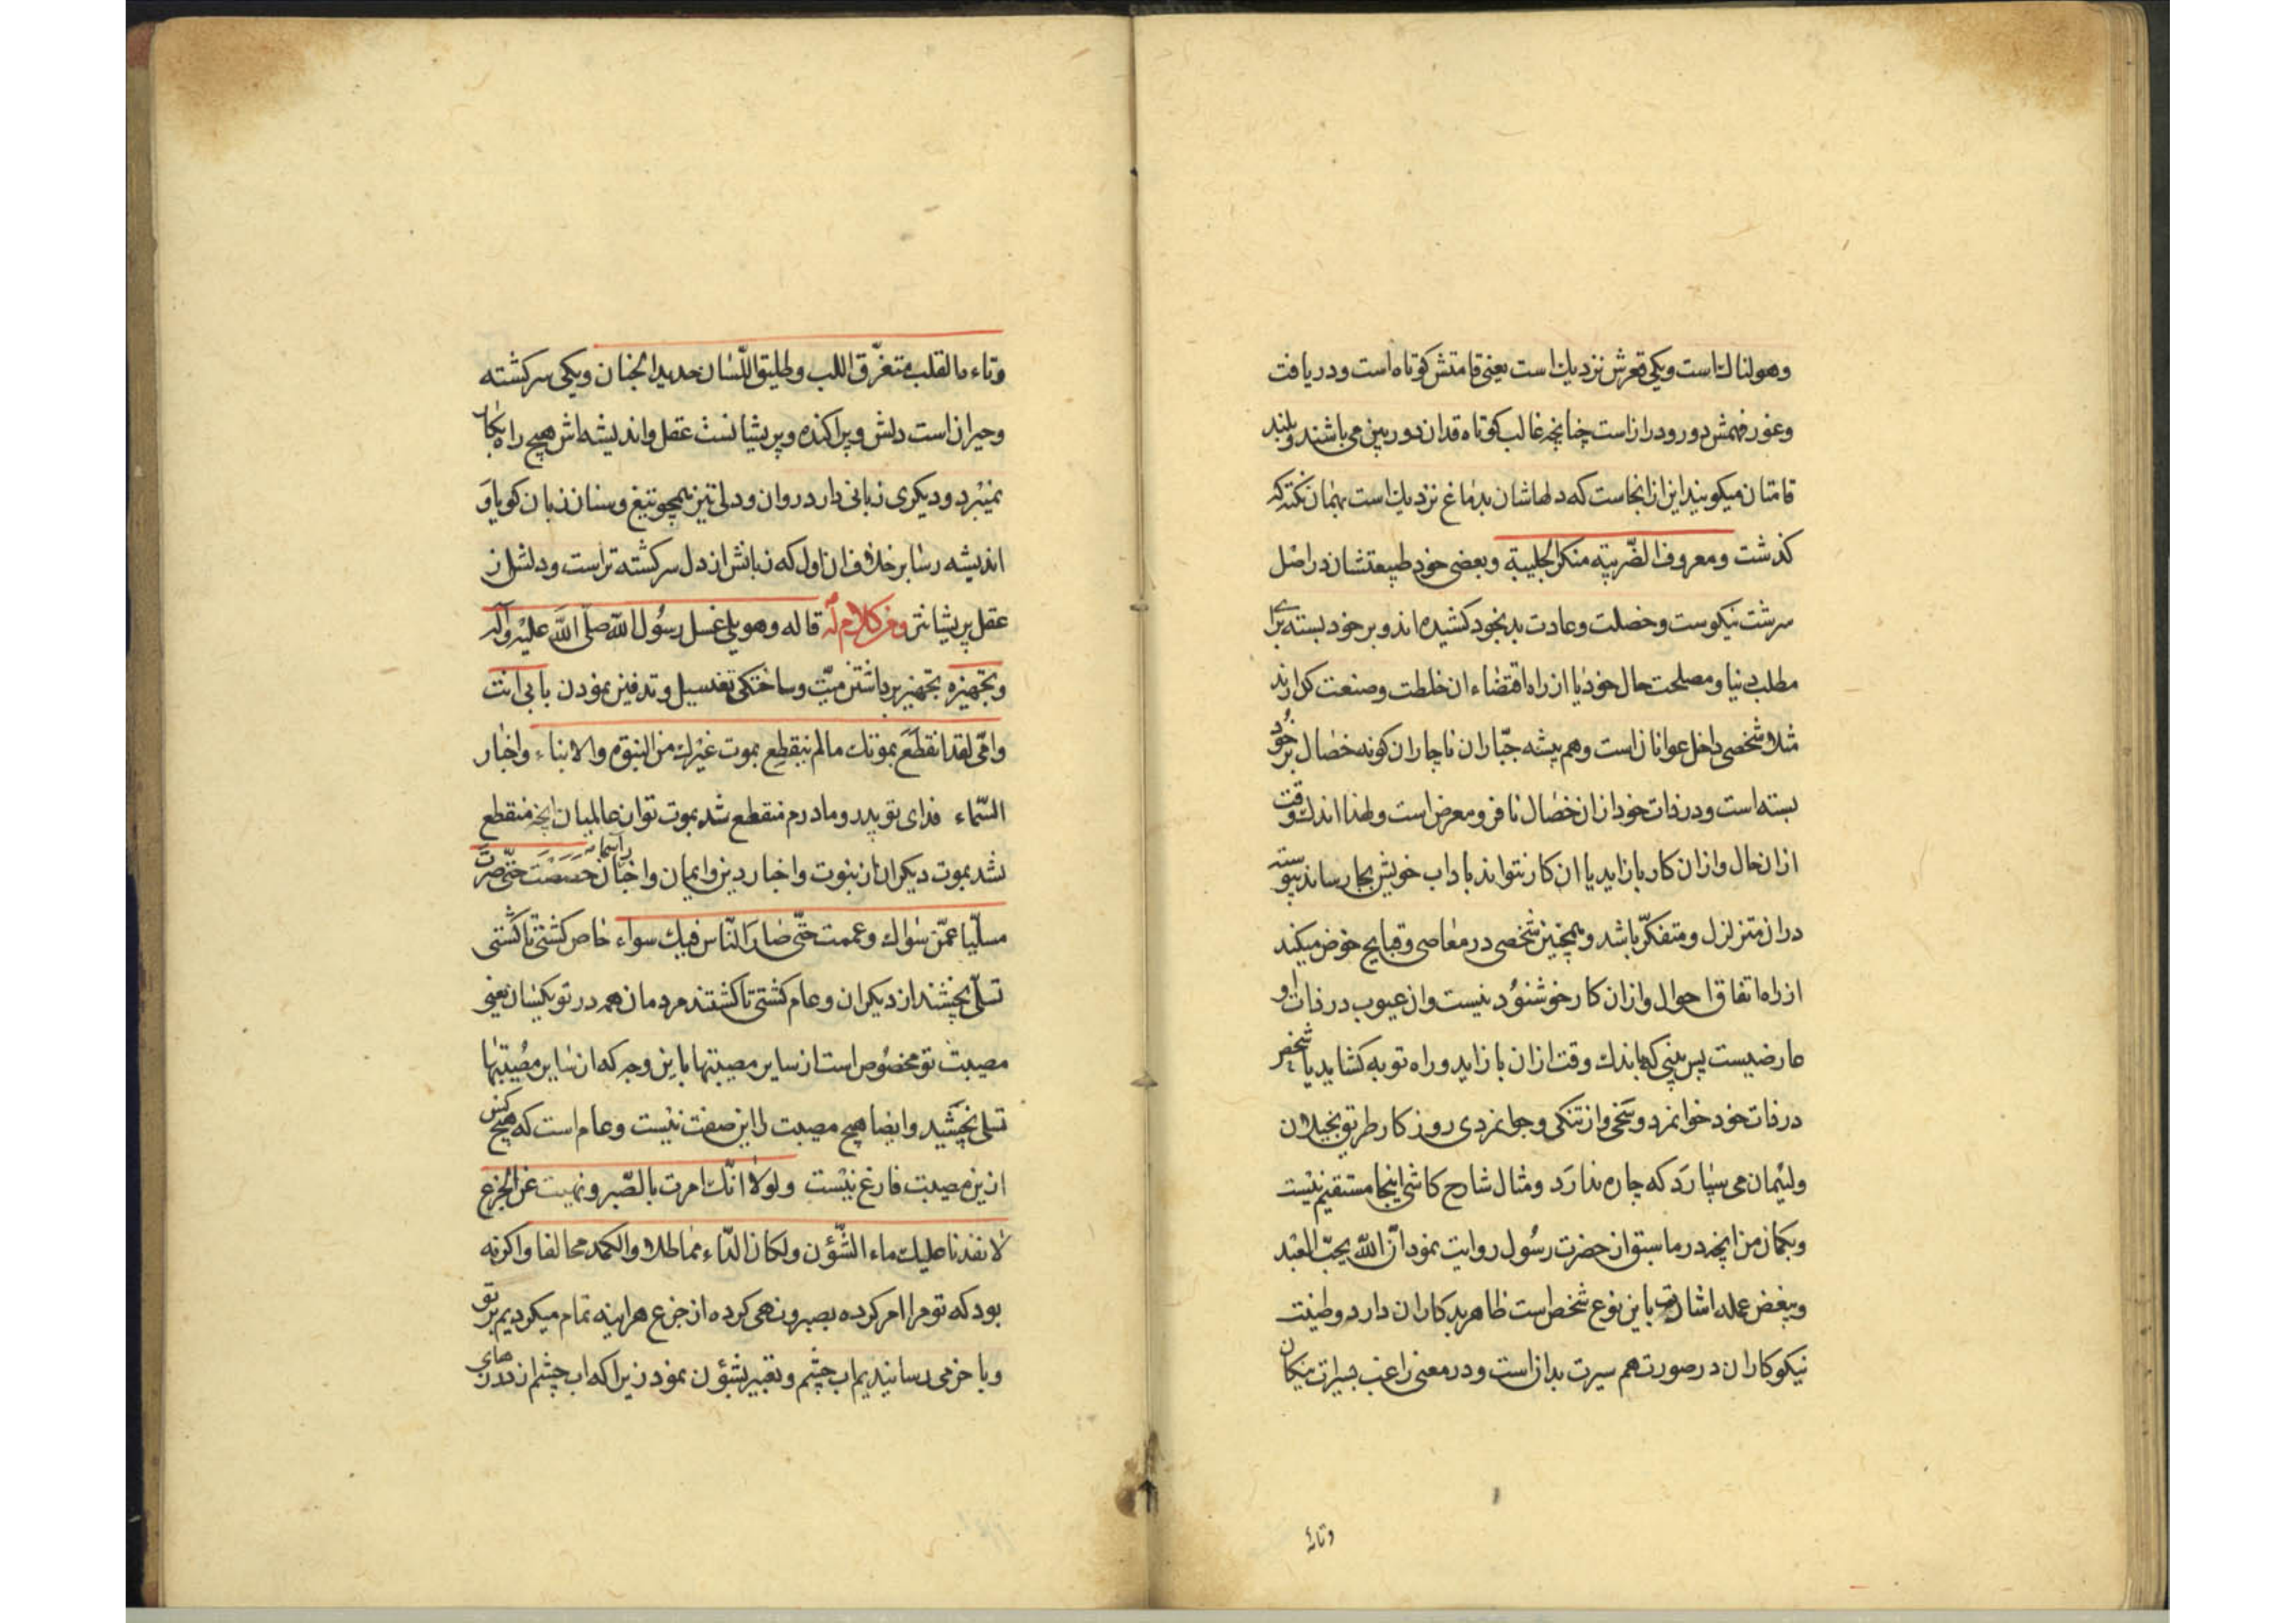 وهولناك است ويكى قعرش نزديك است يعنى قامتش كوتاه است ودريافت
وغور فهمش دور ودراز است چنانچه غالب كوتاه قدان دوربين مى باشند وبلند
قامتان ميكويند اين ازانجاست كه دلهاشان بدماغ نزديك است بهمان نكته كه
كذشت ومعروف الضّريبة منكر الجليبة وبعضى خود طبيعتشان دراصل
سرشت نيكوست وخصلت وعادت بد بخود كشيده اند وبر خود بسته براى
مطلب دنيا ومصلحت حال خود يا از راه اقتضاء ان خلطت وصنعت كه دارند
مثلا شخصى داخل عوانان است وهم پيشه جبّاران ناچار ان كونه خصال بر خود
بسته است ودر ذات خود ازان خصال نافر ومعرض است ولهذا اندك وقت
ازان حال وازان كار باز ايد يا ان كار نتواند باداب خويش بجا رساند پيوسته
دران متزلزل ومتفكّر باشد وهمچنين شخصى در معاصى وقبايح خوض ميكند
از راه اتفاق احوال وازان كار خوشنود نيست وان عيوب در ذات او
عارضيست پس بينى كه باندك وقت ازان باز ايد وراه توبه كشايد يا شخصى
در ذات خود جوانمرد وسخى واز تنكى وجوانمردى روزكار طريق بخيلان
ولئيمان مى سپارد كه چاره ندارد ومثال شارح كاشى اينجا مستقيم نيست
وبكمان من انچه در ما سبق از حضرت رسول روايت نمود انّ الله يحبّ العبد
ويبغض عمله اشارت باين نوع شخص است ظاهر بدكاران دارد وطينت
نيكوكاران در صورت هم سيرت بدان است ودر معنى راغب بسيرت نيكان
وتاءم
وتاءم القلب متفرّق اللب وطليق اللّسان حديد الجنان ويكى سركشته
وحيران است دلش وپراكنده وپريشانست عقل وانديشه اش هيچ راه بكار
نميبرد وديكرى زبانى دارد روان ودلى تيز همچو تيغ وسنان زبان كويا و
انديشه رسا برخلاف ان اول كه زبانش از دل سركشته تر است ودلش از
عقل پريشانتر ومن كلام له قاله وهو يلى غسل رسول الله صلّى الله عليه وآله
وتجهيزه تجهيز برداشتن ميّت وساختكى تغسيل وتدفين نمودن بابى انت
وامّى لقد انقطع بموتك ما لم ينقطع بموت غيرك من النبوّة والانباء واخبار
السّماء فداى تو پدر ومادرم منقطع شد بموت تو از عالميان انچه منقطع
نشد بموت ديكران از نبوت واخبار دين وايمان واخبار آسمان خصصت حتّى صرت
مسلّيا عمّن سواك وعممت حتّى صار النّاس فيك سواء خاص كشتى تا كشتى
تسلّى بخشند از ديكران وعام كشتى تا كشتند مردمان همه در تو يكسان يعنى
مصيبت تو مخصوص است از ساير مصيبتها باين وجه كه از ساير مصيبتها
تسلى بخشيد وايضا هيچ مصيبت را اين صفت نيست وعام است كه هيچ كس
ازين مصيبت فارغ نيست ولولا انّك امرت بالصّبر ونهيت عن الجزع
لانفدنا عليك ماء الشّؤن ولكان الدّاء مماطلا والكمد محالفا واكر نه
بود كه تو مرا امر كرده بصبر ونهى كرده از جزع هراينه تمام ميكرديم بر تو
وباخر مى رسانيديم اب چشم وتعبير بشؤن نمود زيرا كه اب چشم از درزهاى